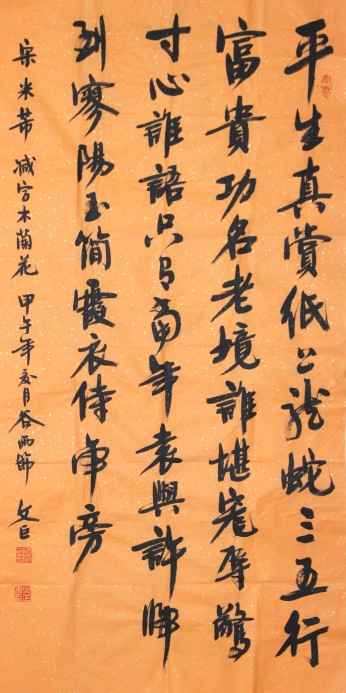 平生真賞纸上龍蛇三五行
富貴功名老境誰堪寵辱驚
寸心誰語只有當年袁與許歸
到寥陽玉简霞衣侍帝旁
宋米芾减字木蘭花 甲午年夏月谷雨節 文巨